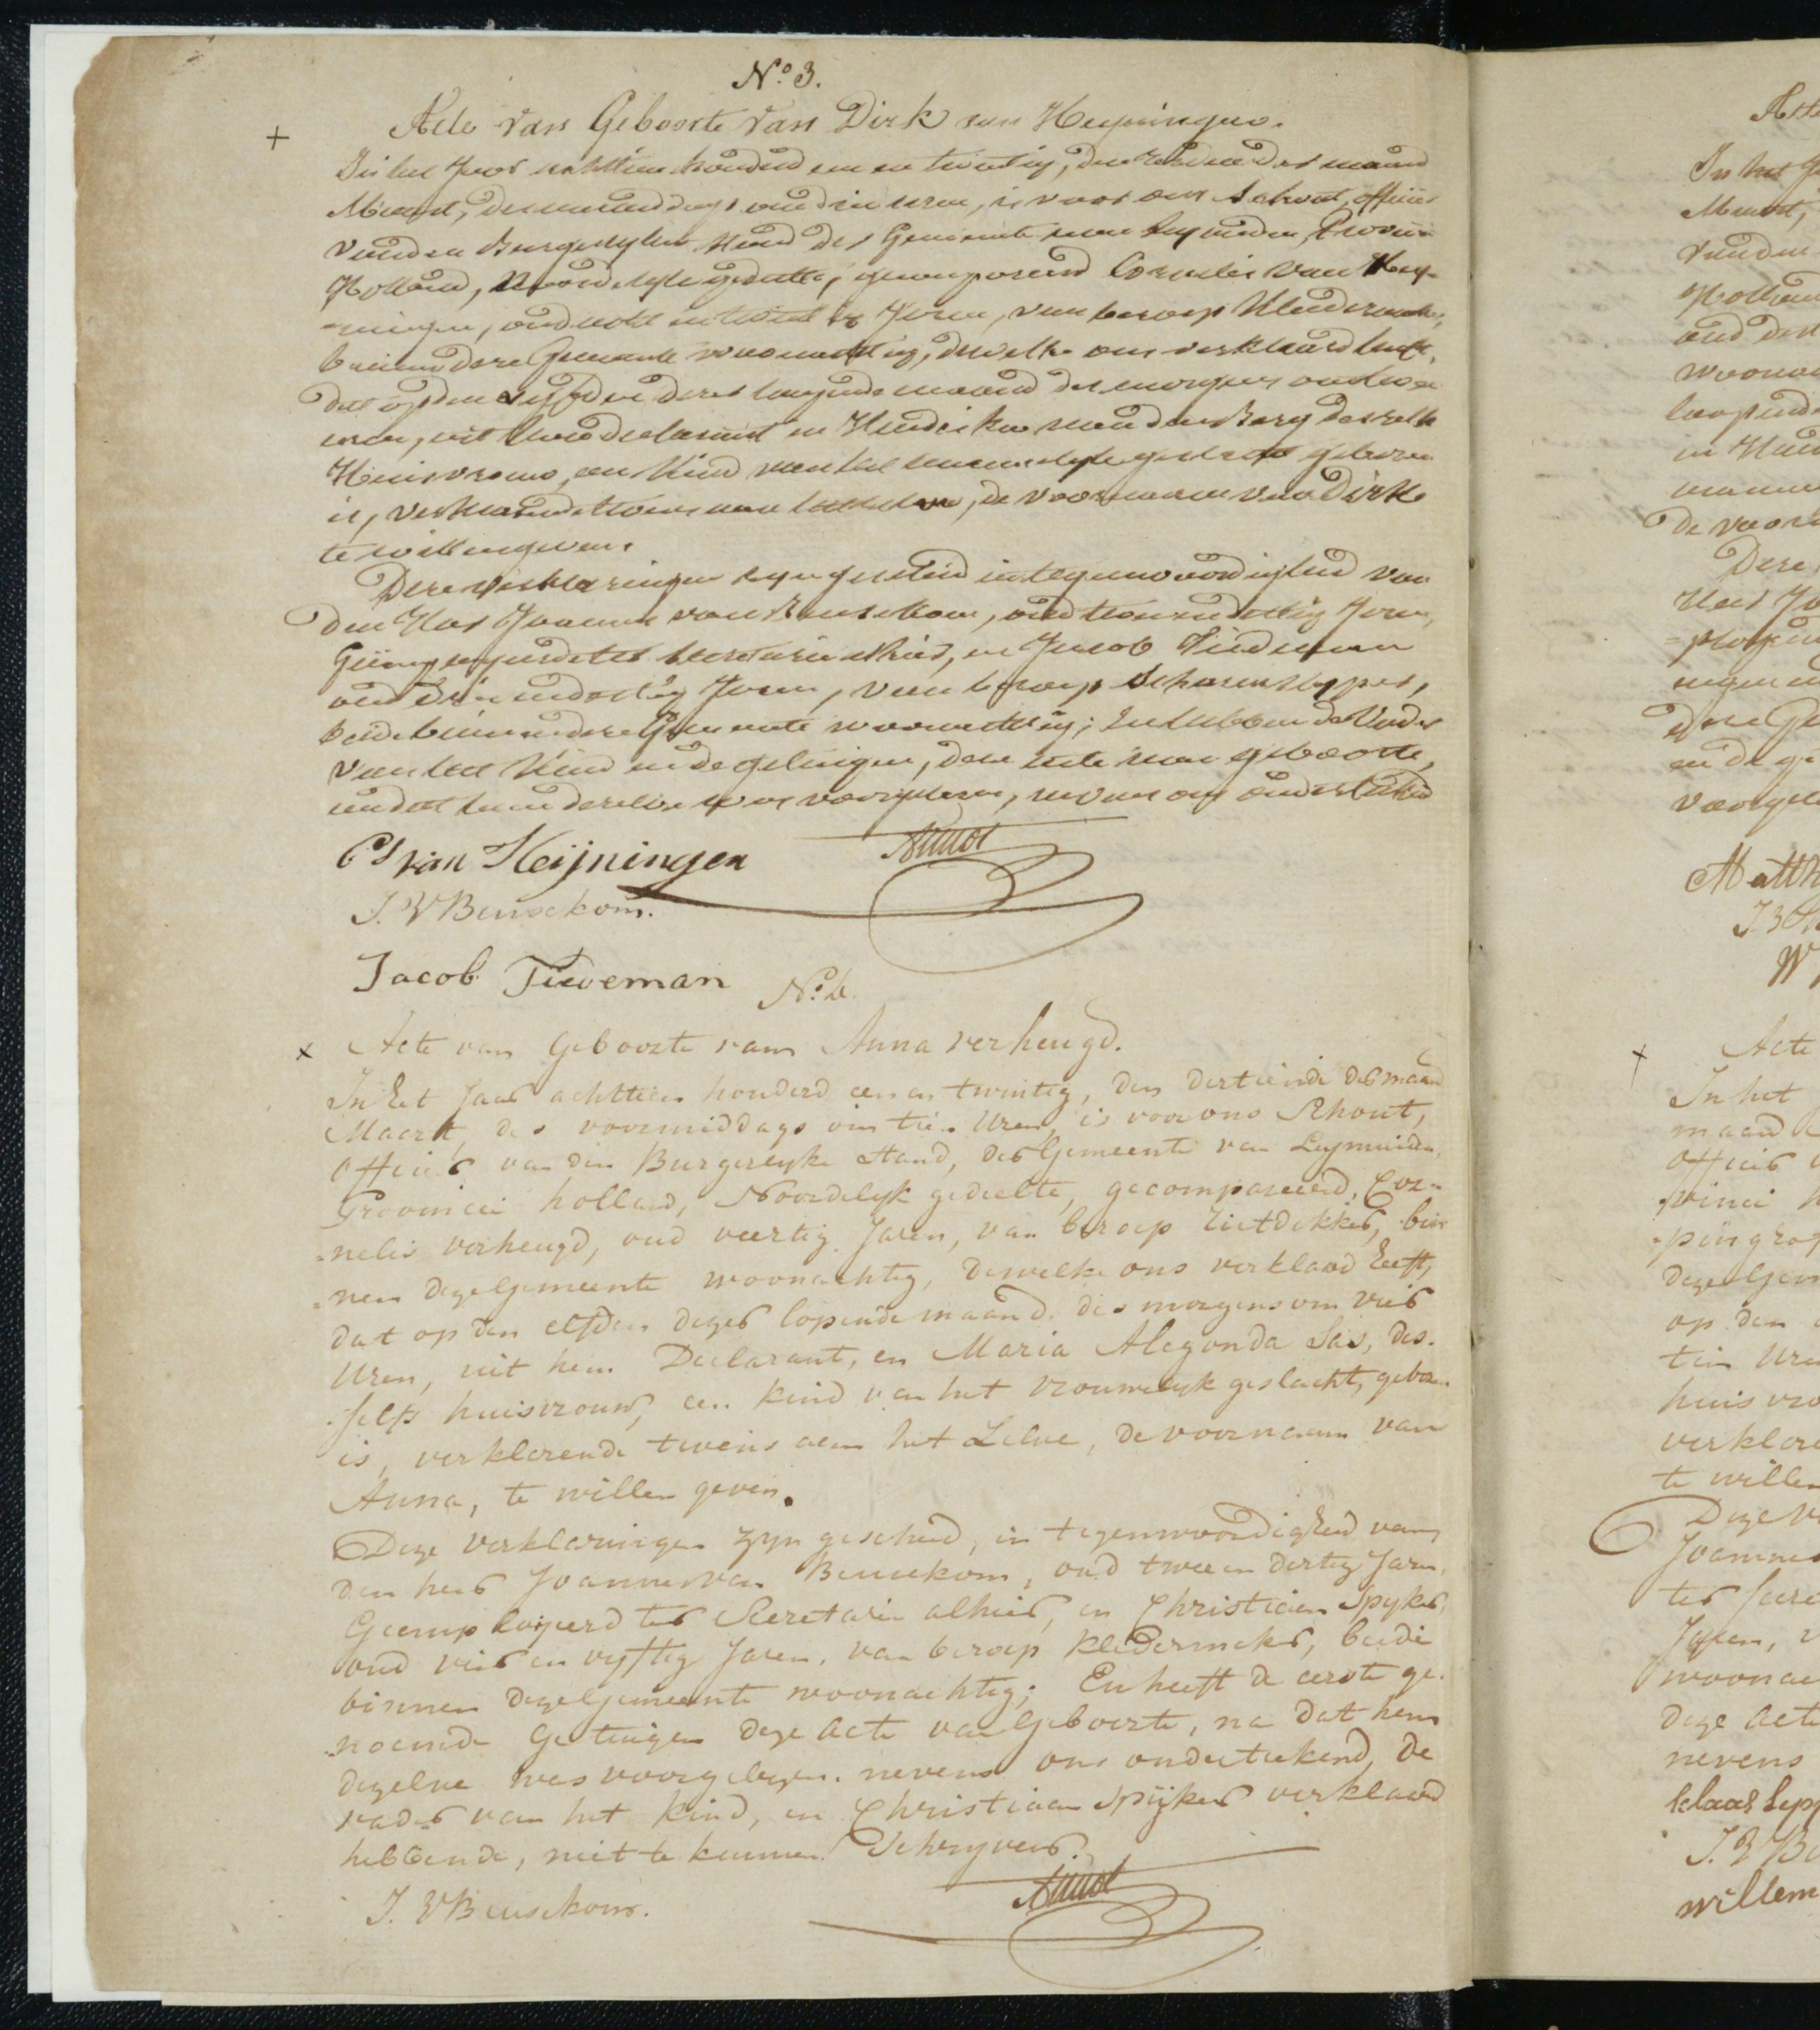 No. 3.
+ Acte van Geboorte van Dirk van Heyningen.
In het Jaar achttien honderd een en twintig, den der maand
Maart, des namiddags om drie uren, is voor ons Schout, officier
van den Burgerlyken Stand der Gemeente van Leymuiden, Provincie
Holland, Noordelyk gedeelte, gecompareerd Cornelis van Hey-
-ningen, oud acht en Jaren, van beroep Kledermaker,
binnen deze Gemeente woonachtig, dewelke ons verklaard heeft,
dat op den dezer lopende maand des morgens om
uren, uit hem declarant en Hendrika van den Berg deszelfs
Huisvrouw, een Kind van het mannelyk geslacht geboren
is, verklarende tevens aan hetzelve, de voornaam van Dirk
te willen geven.
Deze verklaringen zyn geschied in tegenwoordigheid van
den Heer Joannes van Beusekom, oud twee en dertig Jaren,
Geëmployeerd ter Secretarie alhier, en Jacob Tiedeman
oud drie en dertig Jaren, van beroep Scharenslyper,
beide binnen deze Gemeente woonachtig; en hebben de Vader
van het Kind en de getuigen, deze acte van geboorte,
nadat hun dezelve was voorgelezen, nevens ons ondertekend
Cs van Heijningen
J. V Beusekom.
Jacob Tiedeman
No. 4.
x Acte van Geboorte van Anna verheugd.
In het Jaar achttien honderd een en twintig, den dertiende der maand
Maart, des voormiddags om tien Uren, is voor ons Schout,
Officier van den Burgerlyke Stand, der Gemeente van Leymuiden,
Provincie holland, Noordelyk gedeelte, gecompareerd, Cor-
-nelis verheugd, oud veertig Jaren, van beroep Rietdekker, bin
-nen deze Gemeente woonachtig, dewelke ons verklaard heeft,
dat op den elfden dezer lopende maand. des morgens om vier
Uren, uit hem Declarant, en Maria Alegonda Sas, des-
-selfs huisvrouw, een kind van het vrouwelyk geslacht, geboren
is, verklarende tevens aan het Zelve, de voornaam van
Anna, te willen geven.
Deze verklaringen zyn geschied, in tegenwoordigheid van
den heer Joannes van Beusekom, oud twee en dertig Jaren,
Geemploijeerd ter Secretarie alhier, en Christiaan Spyker,
oud vier en vyftig Jaren, van beroep Kledermaker, beide
binnen deze Gemeente woonachtig; En heeft de eerste ge-
-noemde Getuigen deze Acte van Geboorte, na dat hem
dezelve was voorgelezen. nevens ons ondertekend, De
vader van het kind, en Christiaan Spijker verklaard
hebbende, niet te kunnen Schryven.
J. V Beusekom.
Acte
In het
Maart,
van den
Holland
oud
woonach
lopende
in
de voor
Deze
Heer Jo
Matth
W
+ Acte
In het
maand
officier
-vincie h
deze Gem
op den
tien Uren
huis vro
verklare
te willen
Deze V
Joannes
ter Secre
Jaren, v
woonac
deze Acte
nevens
klaas
J. V Be
willem